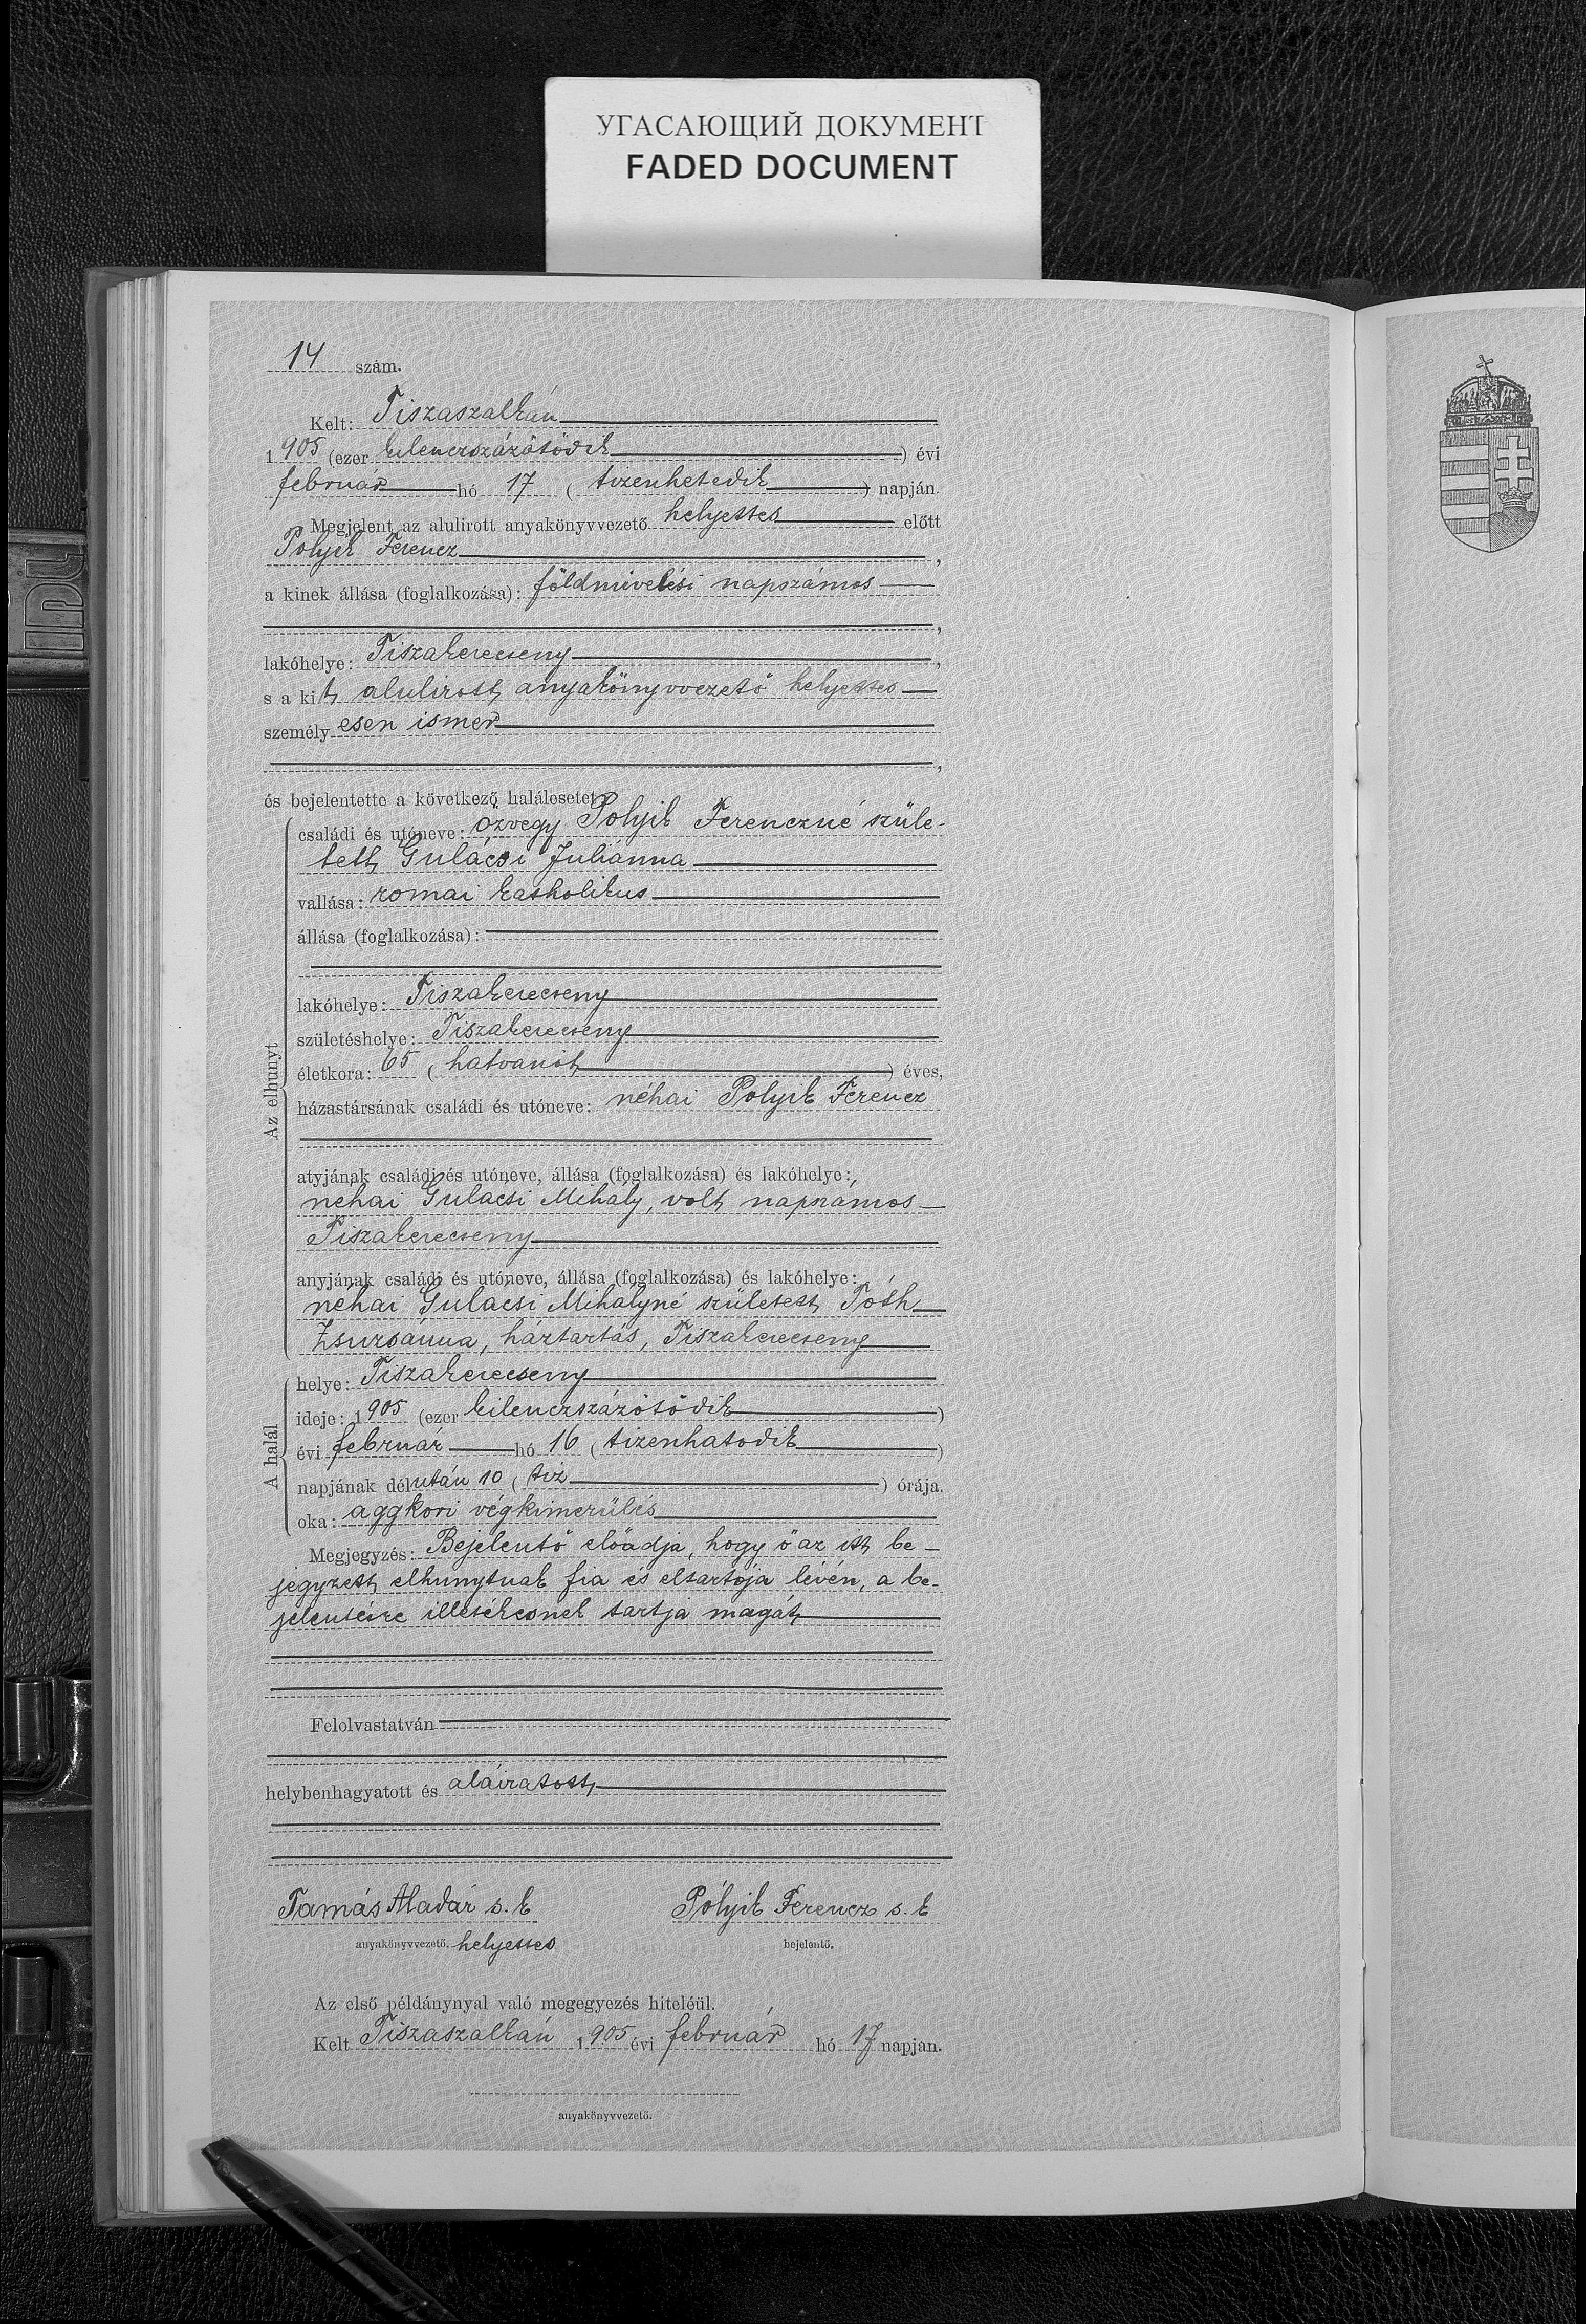 УГАСАЮЩИЙ ДОКУМЕНТ
FADED DOCUMENT
14 szám.
Kelt: Tiszaszalkán
1905 (ezer kilenczszázötödik ) évi
február hó 17 ( tizenhetedik ) napján.
Megjelent az alulirott anyakönyvvezető helyettes előtt
Polyik Ferencz ,
a kinek állása (foglalkozása): földmivelési napszámos
,
lakóhelye: Tiszakerecseny ,
s a kit alulirott anyakönyvvezető helyettes
személyesen ismer
,
és bejelentette a következő halálesetet:
Az elhunyt
családi és utóneve: özvegy Polyik Ferenczné szüle-
tett Gulácsi Juliánna
vallása: romai katholikus
állása (foglalkozása):
lakóhelye: Tiszakerecseny
születéshelye: Tiszakerecseny
életkora: 65 ( hatvanöt ) éves,
házastársának családi és utóneve: néhai Polyik Ferencz
atyjának családi és utóneve, állása (foglalkozása) és lakóhelye:
néhai Gulácsi Mihály, volt napszámos
Tiszakerecseny
anyjának családi és utóneve, állása (foglalkozása) és lakóhelye:
néhai Gulacsi Mihályné született Tóth
Zsuzsánna, háztartás, Tiszakerecseny
A halál
helye: Tiszakerecseny
ideje: 1905 (ezer kilenczszázötödik )
évi február hó 16 ( tizenhatodik )
napjának délután 10 ( tiz ) órája.
oka: aggkori végkimerülés
Megjegyzés: Bejelentő előadja, hogy ő az itt be-
jegyzett elhunytnak fia és eltartója lévén, a be-
jelentésre illetékesnek tartja magát
Felolvastatván
helybenhagyatott és aláiratott,
Tamás Aladár s. k Pólyik Ferencz s. k
anyakönyvvezető. helyettes bejelentő.
Az első példánynyal való megegyezés hiteléül.
Kelt Tiszaszalkán 1905 évi február hó 17 napján.
anyakönyvvezető.